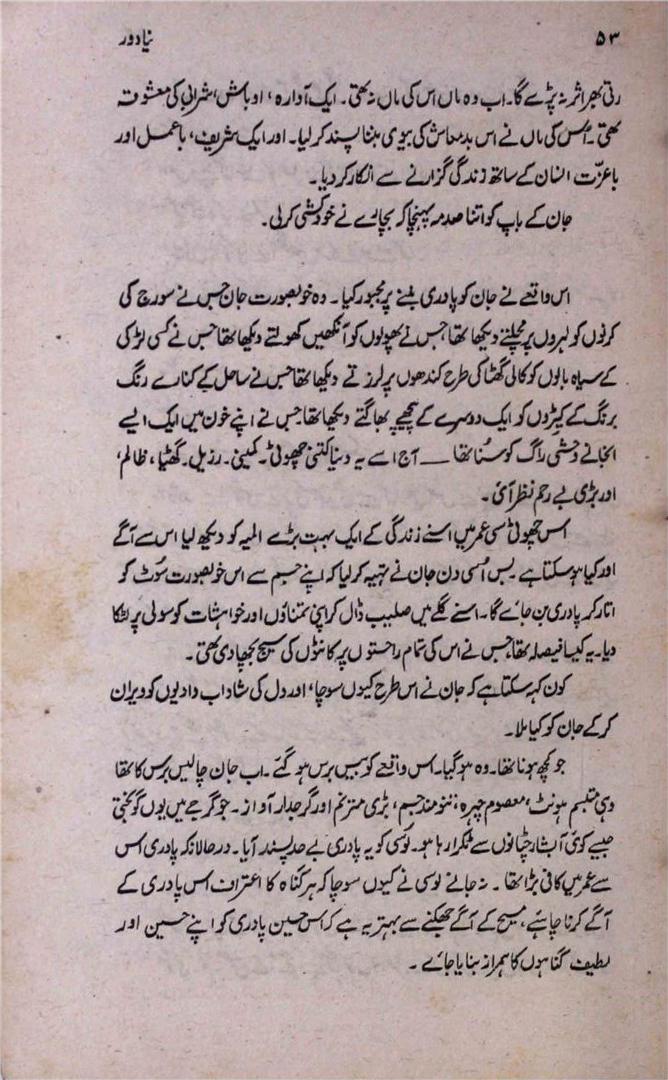 ۵۳ نیا دور
رتی بھر اثر نہ پڑے گا۔ اب وہ ماں اس کی ماں نہ تھی۔ ایک آوارہ، اوباش، شرابی کی معشوقہ
تھی۔ اُس کی ماں نے اس بدمعاش کی بیوی بننا پسند کر لیا۔ اور ایک شریف، باعمل اور
باعزّت انسان کے ساتھ زندگی گزارنے سے انکار کر دیا۔
جان کے باپ کو اتنا صدمہ پہنچا کہ بچارے نے خودکشی کرلی۔
اس واقعے نے جان کو پادری بننے پر مجبور کیا۔ وہ خوبصورت جان جس نے سورج کی
کرنوں کو لہروں پر مچلتے دیکھا تھا، جس نے پھولوں کو آنکھیں کھولتے دیکھا تھا جس نے کسی لڑکی
کے سیاہ بالوں کو کالی گھٹا کی طرح کندھوں پر لرزتے دیکھا تھا جس نے ساحل کے کنارے رنگ
برنگ کے کیڑوں کو ایک دوسرے کے پیچھے بھاگتے دیکھا تھا۔ جس نے اپنے خون میں ایک ایسے
انجانے وحشی راگ کو سُنا تھا ــــ آج اسے یہ دنیا کتنی جھوٹی۔ کمینی۔ رزیل۔ گھٹیا، ظالم،
اور بڑی بے رحم نظر آئی۔
اس چھوٹی سی عمر میں اسنے زندگی کے ایک بہت بڑے المیہ کو دیکھ لیا اس سے آگے
اور کیا ہو سکتا ہے۔ بس اُسی دن جان نے تہیہ کر لیا کہ اپنے جسم سے اس خوبصورت سُوٹ کو
اتار کر پادری بن جائے گا۔ اسنے گلے میں صلیب ڈال کر اپنی تمناؤں اور خواہشات کو سولی پر لٹکا
دیا۔ یہ کیسا فیصلہ تھا، جس نے اس کی تمام راستوں پر کانٹوں کی سیج بچھا دی تھی۔
کون کہہ سکتا ہے کہ جان نے اس طرح کیوں سوچا، اور دل کی شاداب وادیوں کو ویران
کر کے جان کو کیا ملا۔
جو کچھ ہونا تھا۔ وہ ہو گیا۔ اس واقعے کو بیس برس ہو گئے۔ اب جان چالیس برس کا تھا
وہی متبسم ہونٹ، معصوم چہرہ، تنومند جسم، بڑی مترنم اور گرجدار آواز۔ جو گرجے میں یوں گونجتی
جیسے کوئی آبشار چٹانوں سے ٹکرا رہا ہو۔ لوسی کو یہ پادری بے حد پسند آیا۔ در حالانکہ پادری اس
سے عمر میں کافی بڑا تھا۔ نہ جانے لوسی نے کیوں سوچا کہ ہر گناہ کا اعتراف اس پادری کے
آگے کرنا چاہئے، مسیح کے آگے جھکنے سے بہتر یہ ہے کہ اس حسین پادری کو اپنے حسین اور
لطیف گناہوں کا ہمراز بنایا جائے۔